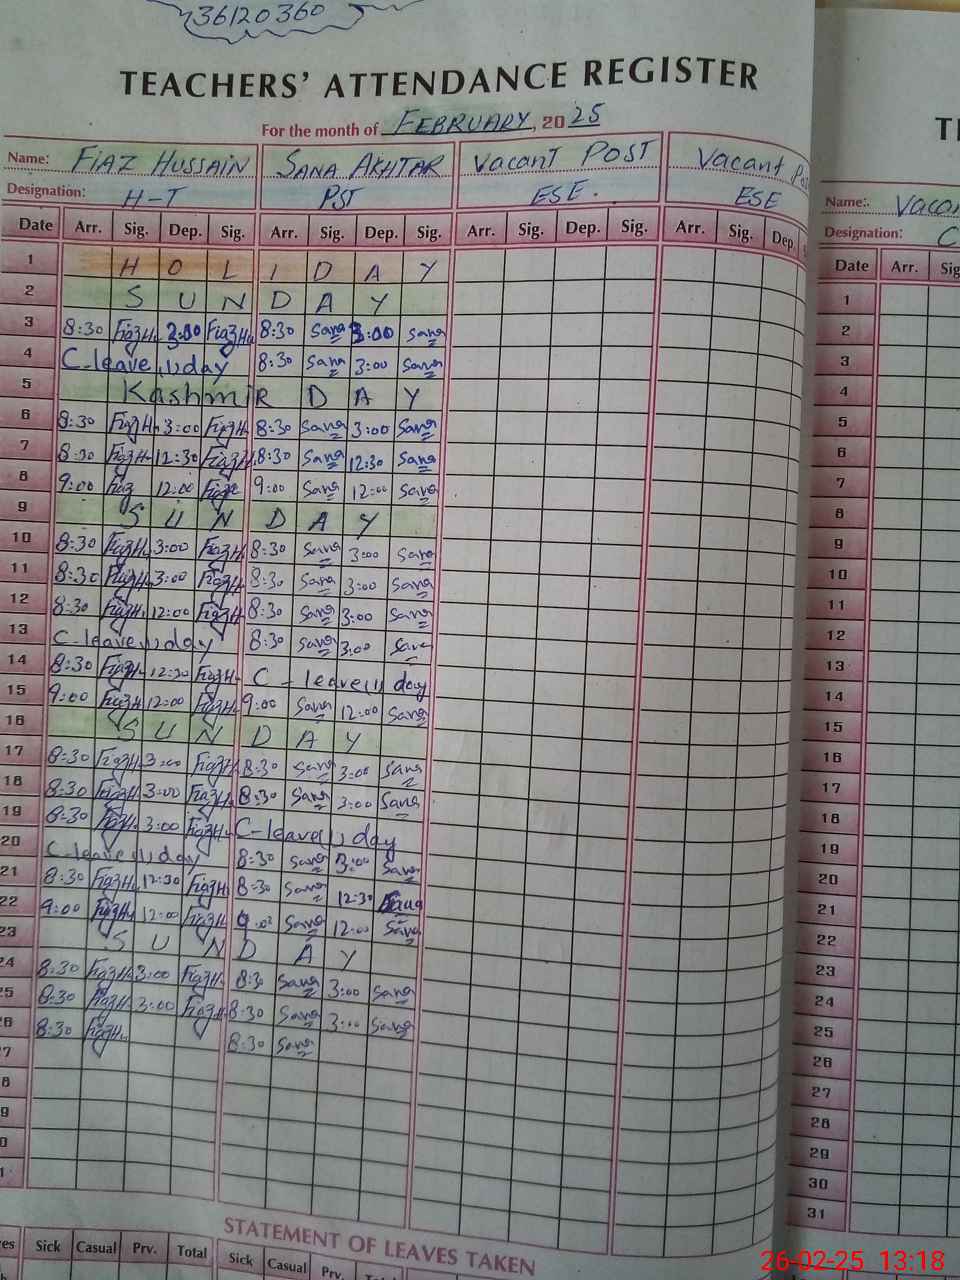 36120360
TEACHERS' ATTENDANCE REGISTER
For the month of FEBRUARY, 2025
Name: FIAZ HUSSAIN SANA AKHTAR Vacant POST Vacant
Designation: H-T PST ESE. ESE
Date Arr. Sig. Dep. Sig. Arr. Sig. Dep. Sig. Arr. Sig. Dep. Sig. Arr. Sig. Dep.
1 HOLIDAY
2 SUNDAY
3 8:30 FiazH. 3:00 FiazH. 8:30 Sana 3:00 Sana
4 C-leave 1,, day 8:30 Sana 3:00 Sana
5 Kashmir DAY
6 8:30 FiazH. 3:00 FiazH. 8:30 Sana 3:00 Sana
7 8:30 FiazH. 12:30 FiazH. 8:30 Sana 12:30 Sana
8 9:00 Fiaz 12:00 Fiaz 9:00 Sana 12:00 Sana
9 SUNDAY
10 8:30 FiazH. 3:00 FiazH. 8:30 Sana 3:00 Sana
11 8:30 FiazH. 3:00 FiazH. 8:30 Sana 3:00 Sana
12 8:30 FiazH. 12:00 FiazH. 8:30 Sana 3:00 Sana
13 C-leave 1,, day 8:30 Sana 3:00 Sana
14 8:30 FiazH. 12:30 FiazH. C-leave 1,, day
15 9:00 FiazH. 12:00 FiazH. 9:00 Sana 12:00 Sana
16 SUNDAY
17 8:30 FiazH. 3:00 FiazH. 8:30 Sana 3:00 Sana
18 8:30 FiazH. 3:00 FiazH. 8:30 Sana 3:00 Sana
19 8:30 FiazH. 3:00 FiazH. C-leave 1,, day
20 C-leave 1,, day 8:30 Sana 3:00 Sana
21 8:30 FiazH. 12:30 FiazH. 8:30 Sana 12:30 Sana
22 9:00 FiazH. 12:00 FiazH. 9:00 Sana 12:00 Sana
23 SUNDAY
24 8:30 FiazH. 3:00 FiazH. 8:30 Sana 3:00 Sana
25 8:30 FiazH. 3:00 FiazH. 8:30 Sana 3:00 Sana
26 8:30 FiazH. 8:30 Sana
STATEMENT OF LEAVES TAKEN
Sick Casual Prv. Total Sick Casual Prv.
Name:
Designation: C
Date Arr.
1
2
3
4
5
6
7
8
9
10
11
12
13
14
15
16
17
18
19
20
21
22
23
24
25
26
27
28
29
30
31
26-02-25 13:18